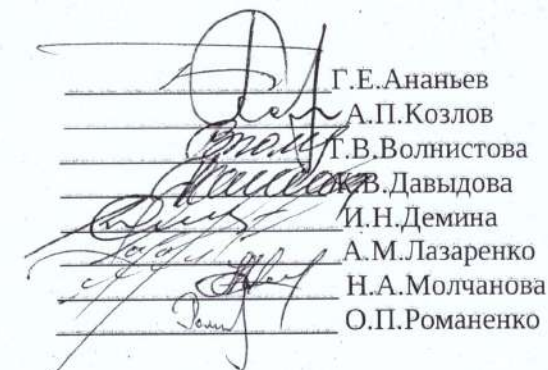 Г.Е.Ананьев
А.П.Козлов
Т.В.Волнистова
В.Давыдова
И.Н.Демина
А.М.Лазаренко
Н.А.Молчанова
О.П.Романенко